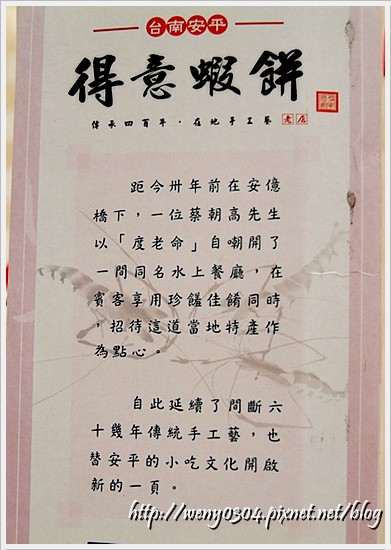 台南安平
得意蝦餅
傳承四百年·在地手工藝 老店
距今卅年前在安億
橋下,一位蔡朝高先生
以「度老命」自嘲開了
一間同名水上餐廳,在
賓客享用珍饈佳餚同時
,招待這道當地特產作
為點心。
自此延續了間斷六
十幾年傳統手工藝,也
替安平的小吃文化開啟
新的一頁。
http://weny0304.pixnet.net/blog